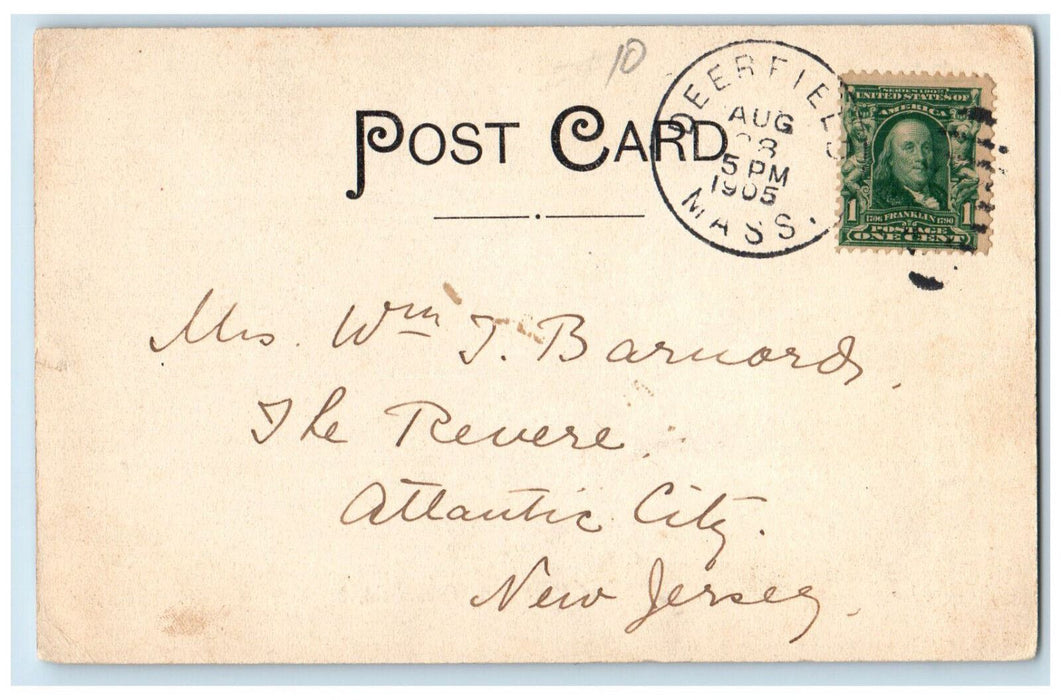 10
POST CARD
DEERFIELD
AUG
28
5 PM
1905
MASS.
SERIES 1902
UNITED STATES OF
AMERICA
1706 FRANKLIN 1790
1 1
POSTAGE
ONE CENT
Mrs. Wm J. Barnard,
The Revere.
Atlantic City.
New Jersey.